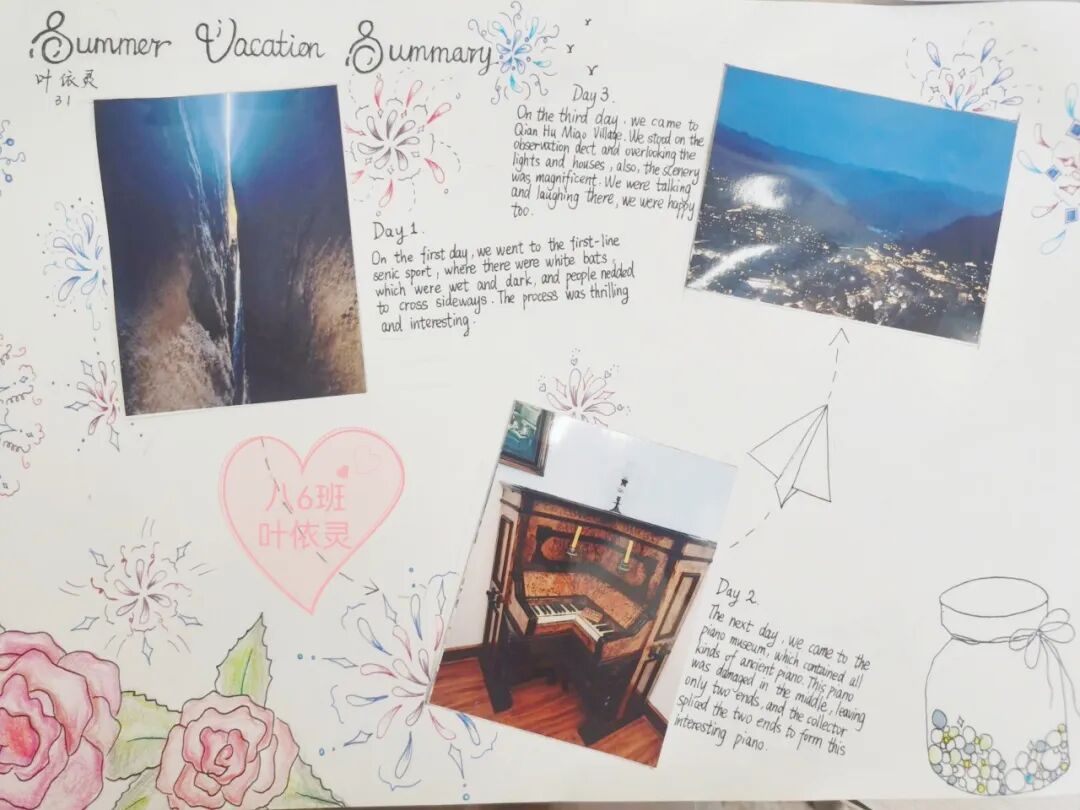 Summer Vacation Summary
叶依灵
31
Day 1.
On the first day, we went to the first-line
senic sport, where there were white bats,
which were wet and dark, and people nedded
to cross sideways. The process was thrilling
and interesting.
Day 3.
On the third day, we came to
Qian Hu Miao Village. We stood on the
observation dect and overlooking the
lights and houses, also, the scenery
was magnificent. We were talking
and laughing there, we were happy
too.
八6班
叶依灵
Day 2.
The next day, we came to the
piano museum, which contained all
kinds of ancient piano. This piano
was damaged in the middle, leaving
only two ends, and the collector
spliced the two ends to form this
interesting piano.